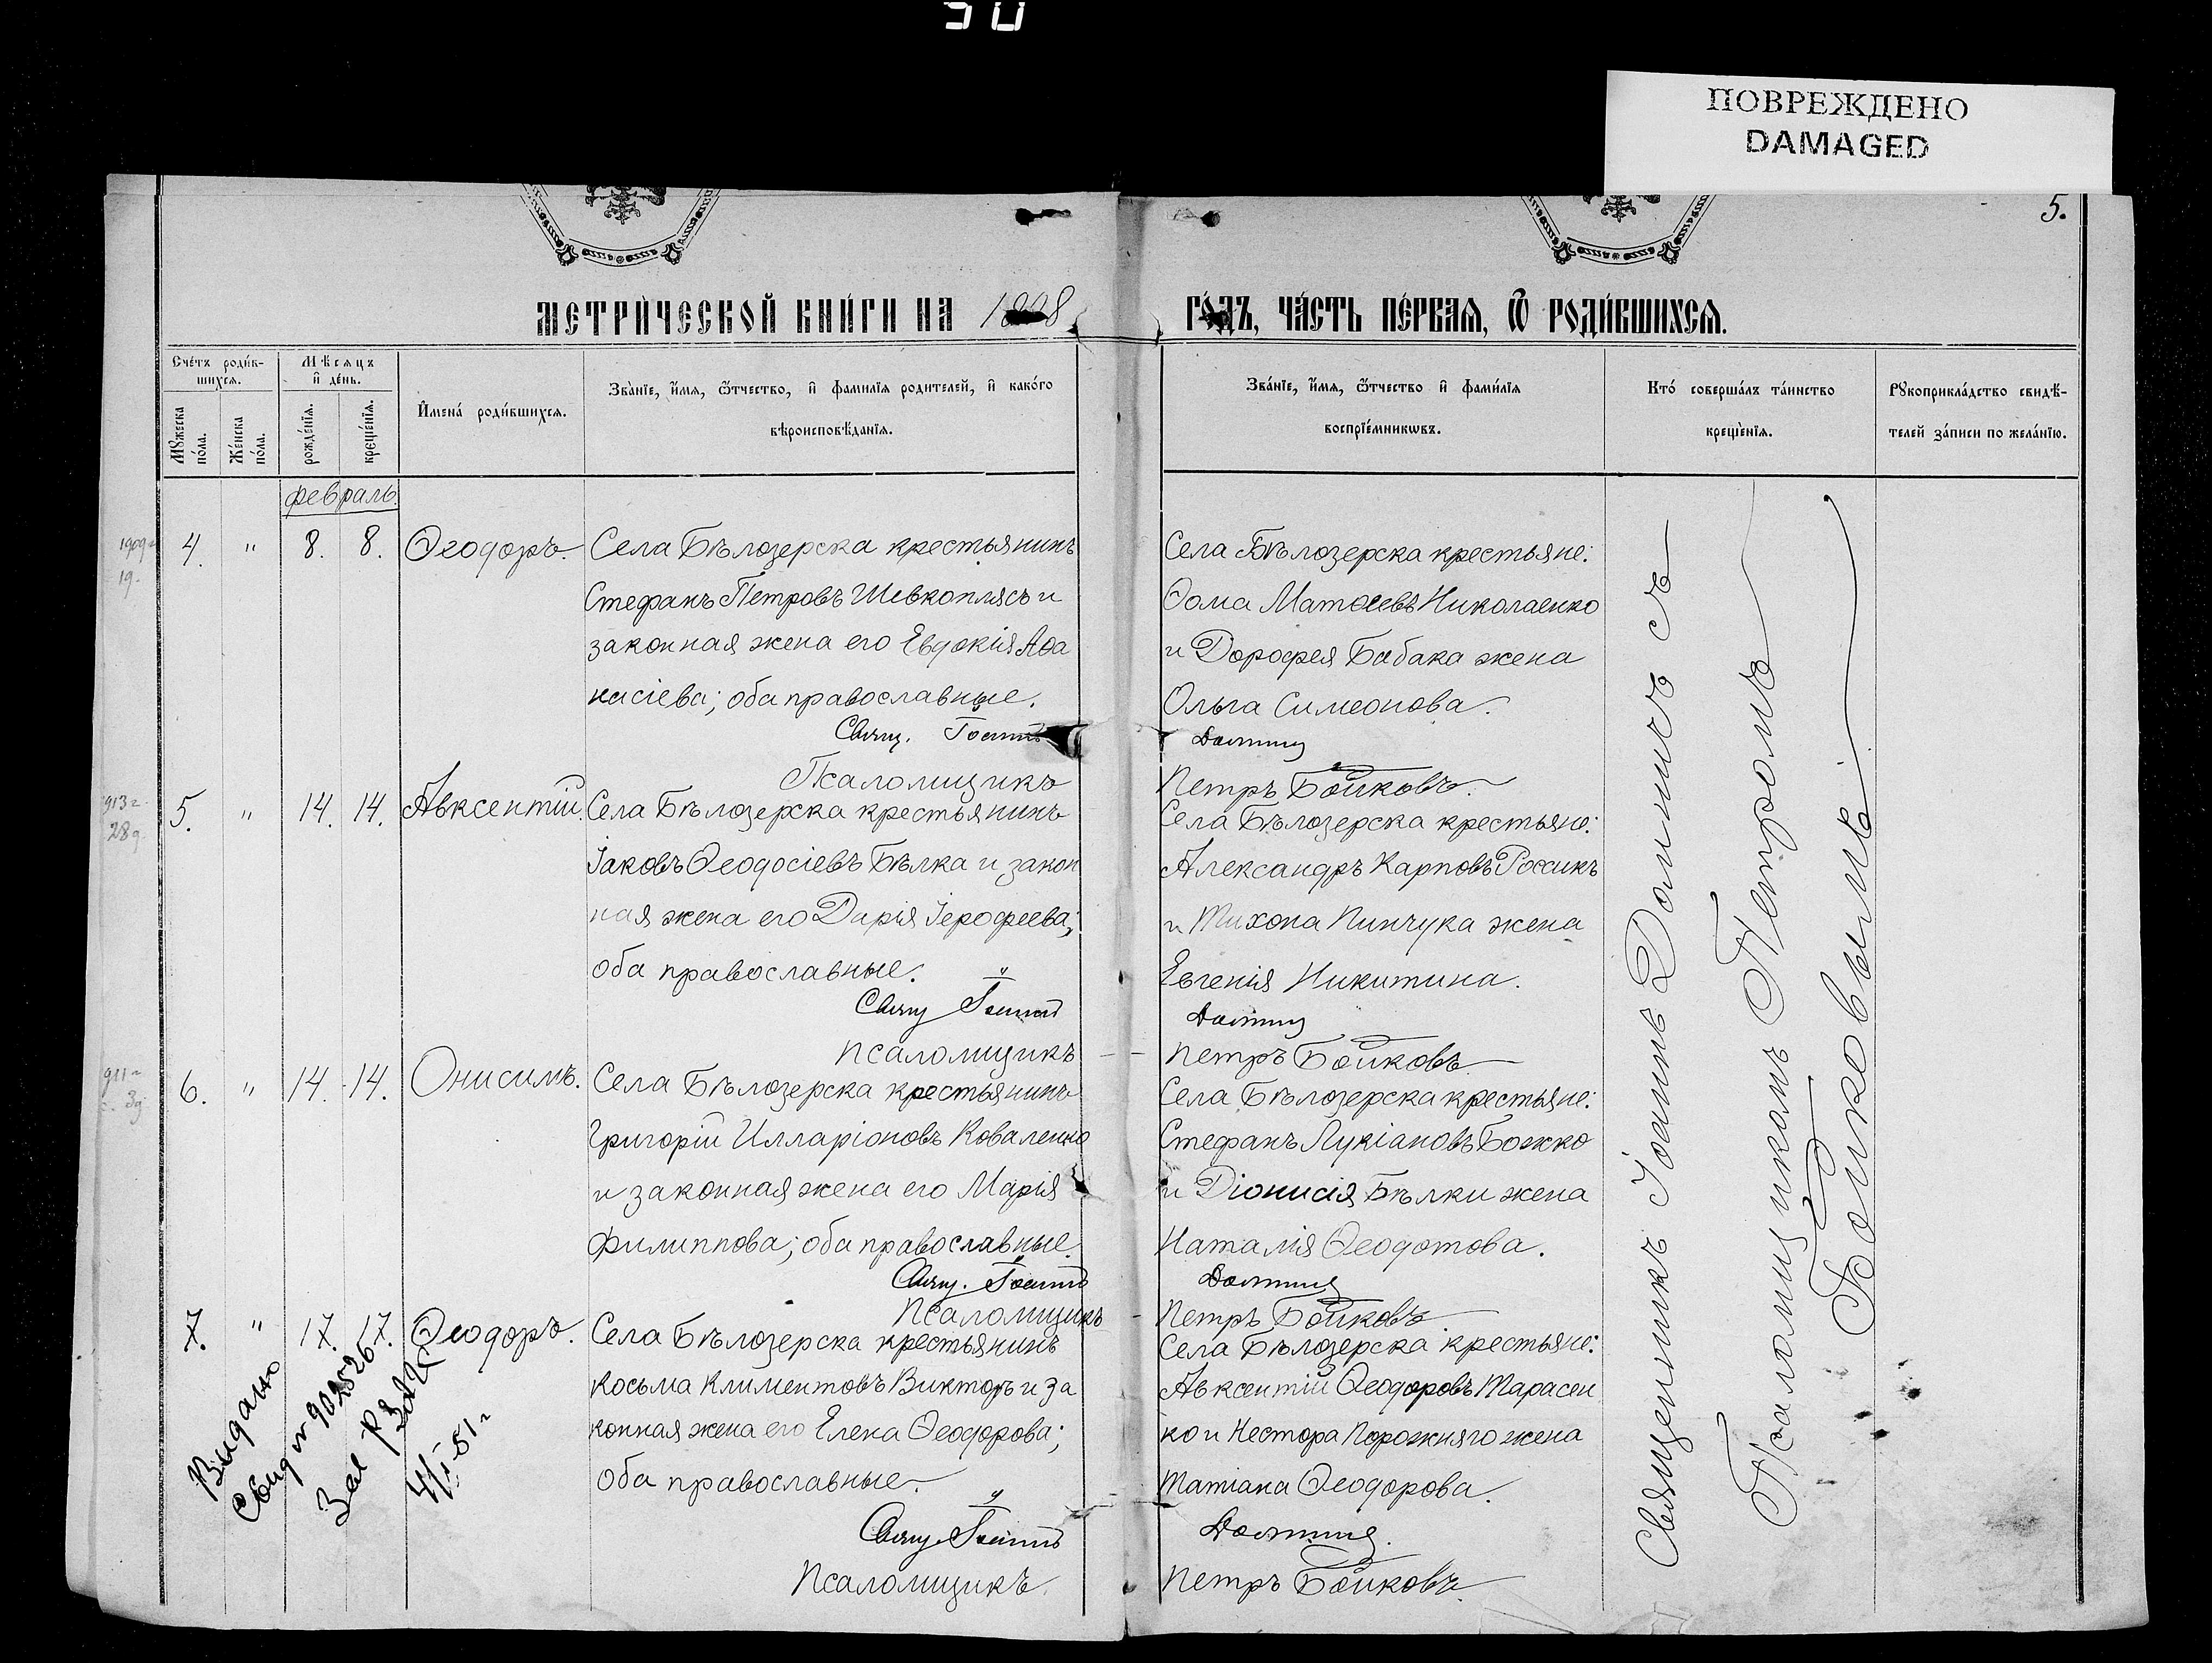 ПОВРЕЖДЕНО
DAMAGED
5.
МЕТРИЧЕСКОЙ КНИГИ НА 18 8 ГОДЪ, ЧАСТЬ ПЕРВАЯ, Ѿ РОДИВШИХСЯ.
Счетъ родив-
шихся.
Мужеска пола.
Женска пола.
Мѣсяцъ
и день.
рожденія.
крещенія.
Имена родившихся.
Званіе, имя, ѿтчество, и фамилія родителей, и какого
вѣроисповѣданія.
Званіе, имя, ѿтчество и фамилія
воспріемниковъ.
Кто совершалъ таинство
крещенія.
Рукоприкладство свидѣ-
телей записи по желанію.
февраль.
1909 г
19.
4. " 8. 8. Ѳеодоръ.
Села Бѣлозерска крестьянинъ
Стефанъ Петровъ Шевкоплясъ и
законная жена его Евдокія Аѳа
насіева; оба православные.
Свящ. Іоаннъ
Псаломщикъ
Села Бѣлозерска крестьяне:
Ѳома Матѳеевъ Николаенко
и Дорофея Бабака жена
Ольга Симеонова.
Петръ Бойковъ.
913 г.
28 д.
5. " 14. 14. Авксентій.
Села Бѣлозерска крестьянинъ
Іаковъ Ѳеодосіевъ Бѣлка и закон
ная жена его Дарія Іерофеева;
оба православные.
Свящ Іоаннъ
Псаломщикъ
Села Бѣлозерска крестьяне:
Александръ Карповъ Россикъ
и Тихона Пинчука жена
Евгенія Никитина.
Петръ Бойковъ
911 г
3 д
6. " 14. 14. Онисимъ.
Села Бѣлозерска крестьянинъ
Григорій Илларіоновъ Коваленко
и законная жена его Марія
Филиппова; оба православные.
Свящ. Іоаннъ
Псаломщикъ
Села Бѣлозерска крестьяне:
Стефанъ Лукіановъ Божко
и Діонисія Бѣлки жена
Наталія Ѳеодотова.
Петръ Бойковъ
7. " 17. 17. Ѳеодоръ.
Села Бѣлозерска крестьянинъ
Косьма Климентовъ Викторъ и за
конная жена его Елена Ѳеодорова;
оба православные.
Свящ. Іоаннъ
Псаломщикъ.
Села Бѣлозерска крестьяне:
Авксентій Ѳеодоровъ Тарасен
ко и Нестора Порожняго жена
Татіана Ѳеодорова.
Петръ Бойковъ
Видано
Свид
Священникъ Іоаннъ
Псаломщикомъ Петромъ
Бойковымъ